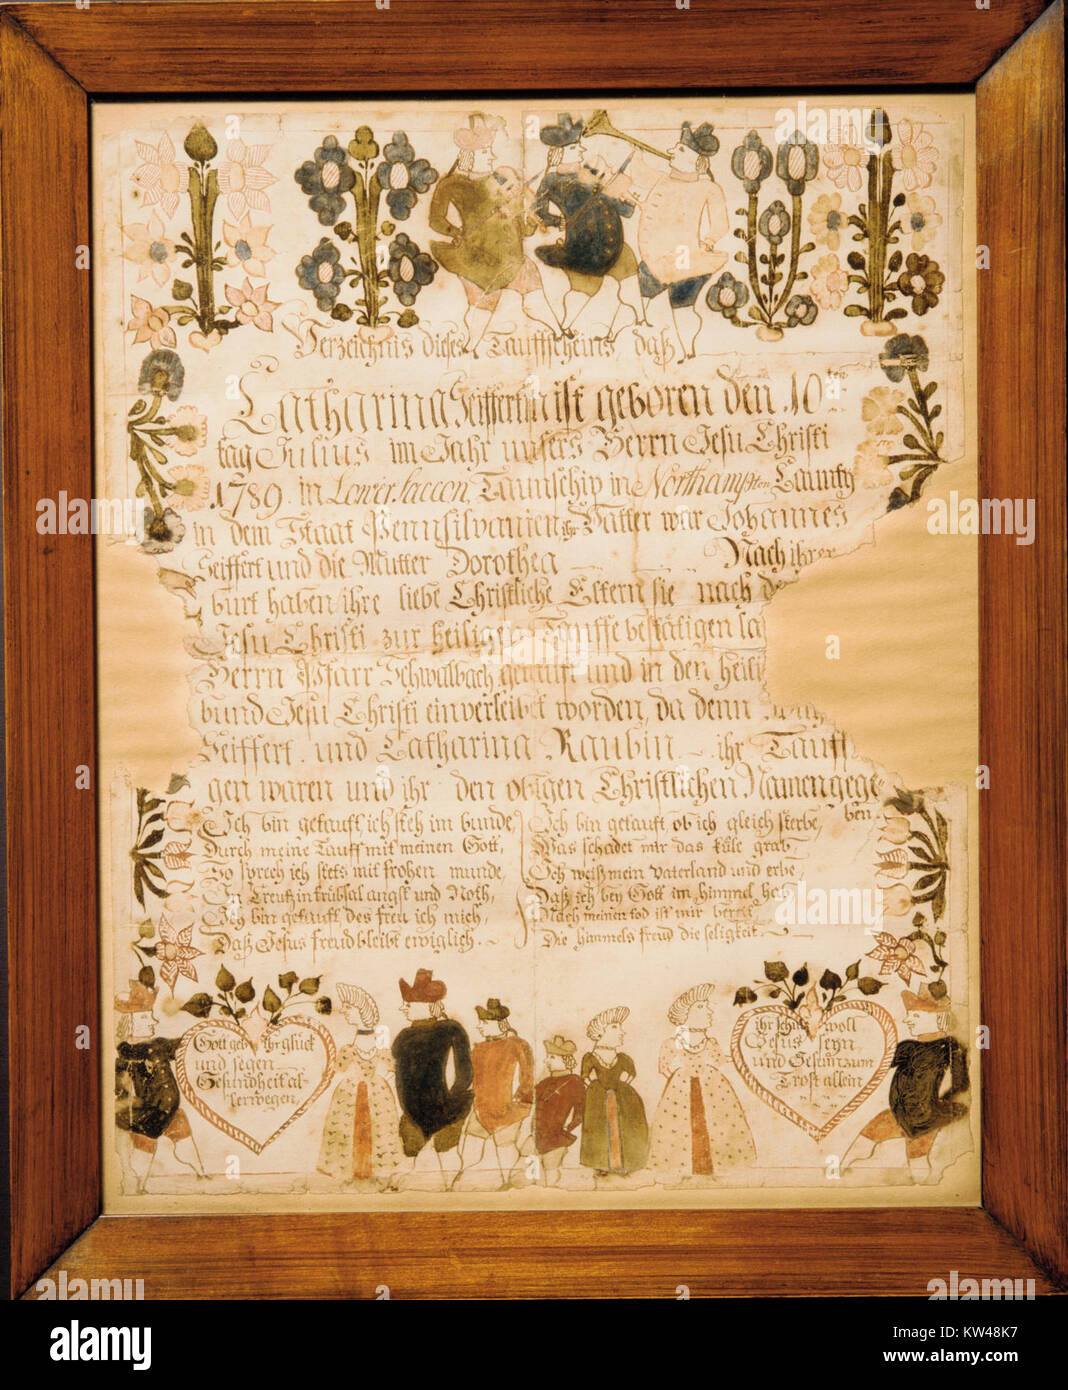 Verzeichnis dieses Tauffscheins, daß
Catharina Seiffertin ist geboren den 10ten
tag Julius im Jahr unsers Herrn Jesu Christi
1789. in Lower Saccon Taunschip in Northampton Caunty
in dem Staat Pennsilvanien ihr Vatter war Johannes
Seiffert und die Mutter Dorothea Nach ihrer
burt haben ihre liebe Christliche Eltern sie nach d
Jesu Christi zur heiligen Tauffe bestätigen la
Herrn Pfarr Schwalbach getauft und in den heili
bund Jesu Christi einverleibet worden, da denn
Seiffert und Catharina Raubin ihr Tauff
gen waren und ihr den obigen Christlichen Namen gege
ben
Ich bin getauft, ich steh im bunde,
Durch meine Tauff mit meinen Gott,
So sprech ich stets mit frohen munde,
In Creutz in trübsal angst und Noth,
Ich bin getauft des freu ich mich,
Daß Jesus freud bleibt ewiglich.
Ich bin getauft, ob ich gleich sterbe,
Was schadet mir das küle grab
Ich weiß mein vaterland und erbe,
Daß ich bey Gott im himmel hab
Nach meinen tod ist mir bereit
Die himmels freud die seligkeit.
Gott geb Ihr glück
und segen
Gesundheit al-
lerwegen,
ihr schutz woll
Jesus seyn
und Gesunt zum
Trost allein
alamy stock photo
KW48K7
www.alamy.com